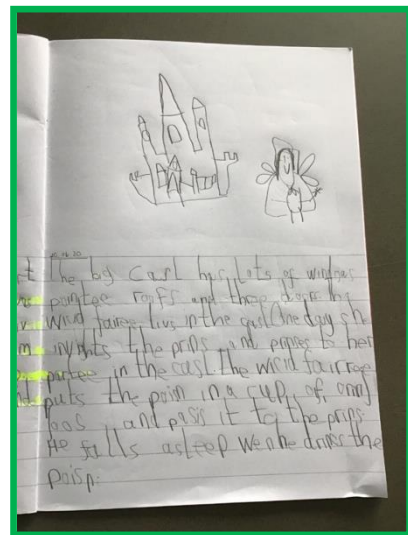 The big casl has lots of windows
pointee roofs and three doors big
Wicid fairee livs in the casl One day sh
invights the prins and prinses to her
partee in the casl. the wicid fairee
puts the poisn in a cup of oring
joos and pasis it to the prins
He falls asleep wen he drincs the
poisn.